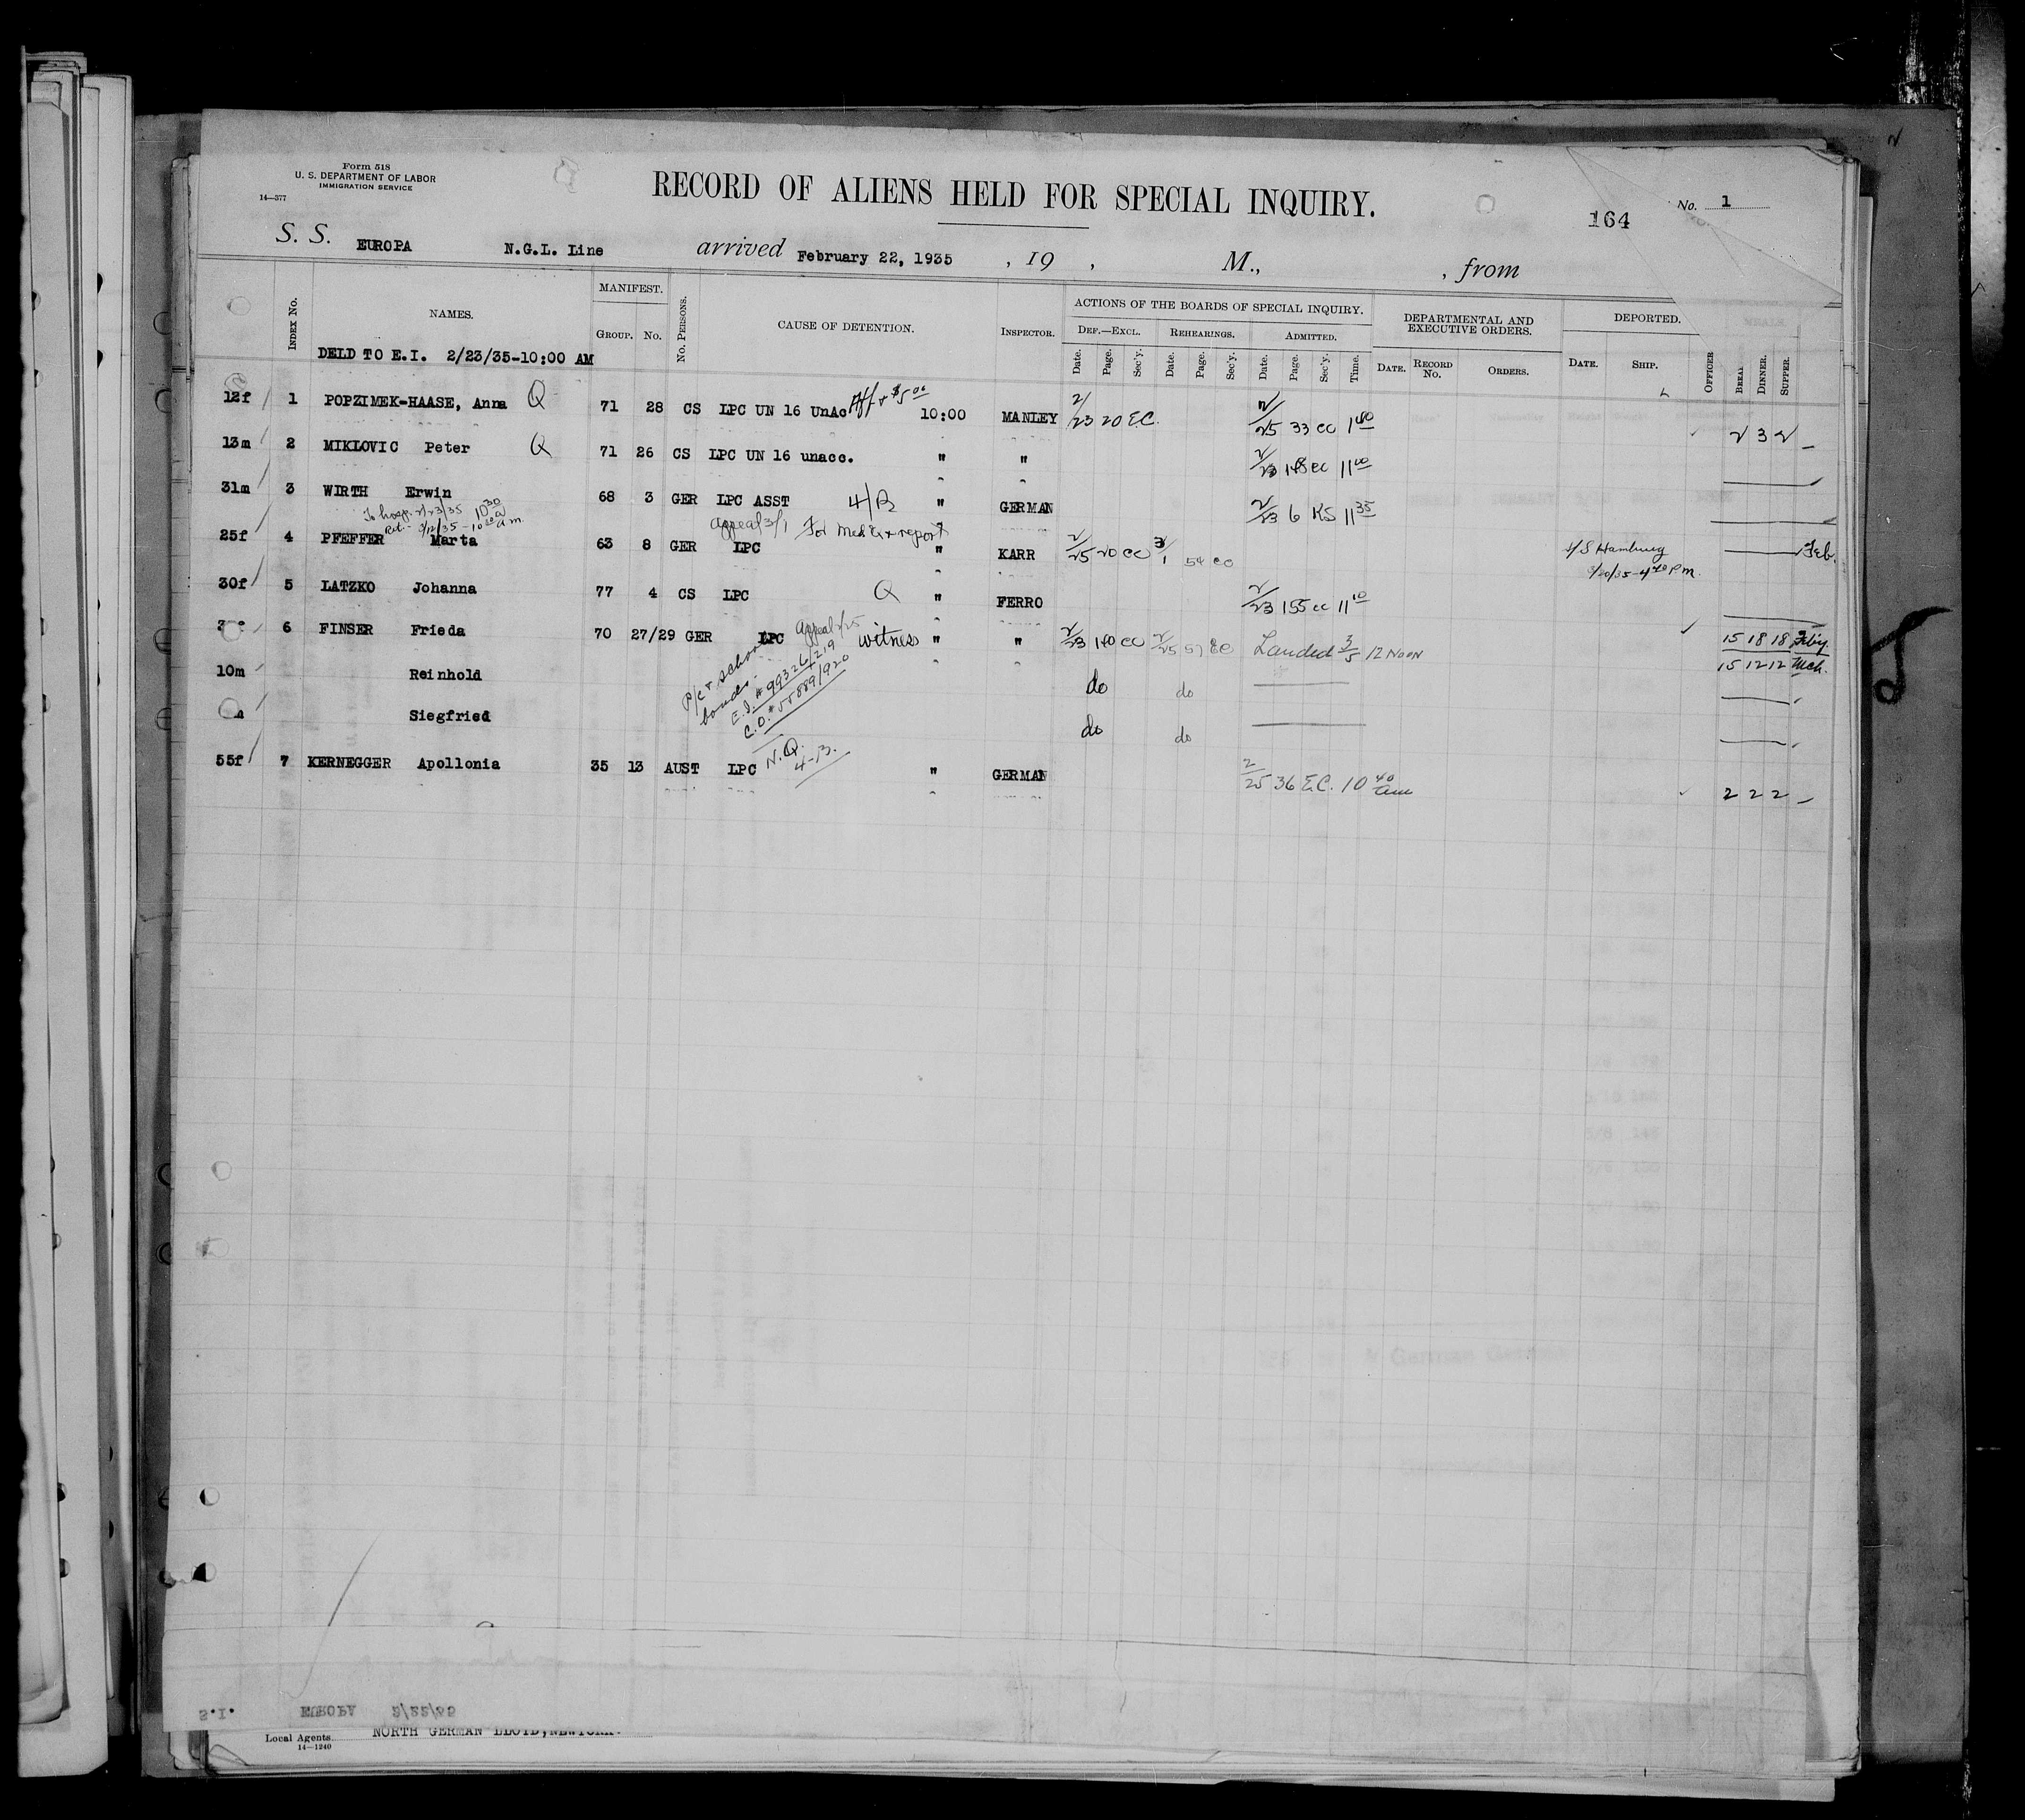 Form 518
U. S. DEPARTMENT OF LABOR
IMMIGRATION SERVICE
14—377
RECORD OF ALIENS HELD FOR SPECIAL INQUIRY.
164
No. 1
S. S. EUROPA N.G.L. Line arrived February 22, 1935 , 19 , M., , from
INDEX No. NAMES. MANIFEST. GROUP. No. No. PERSONS. CAUSE OF DETENTION. INSPECTOR. ACTIONS OF THE BOARDS OF SPECIAL INQUIRY. DEPARTMENTAL AND EXECUTIVE ORDERS. DEPORTED.
DEF.—EXCL. REHEARINGS. ADMITTED.
Date. Page. Sec'y. Date. Page. Sec'y. Date. Page. Sec'y. Time. DATE. RECORD No. ORDERS. DATE. SHIP. OFFICER DINNER. SUPPER.
DELD TO E.I. 2/23/35-10:00 AM
12f 1 POPZIMEK-HAASE, Anna Q 71 28 CS LPC UN 16 UnAc Aff + $5.00 10:00 MANLEY 2/23 20 E.C. 2/25 33 1 2 3 2
13m 2 MIKLOVIC Peter Q 71 26 CS LPC UN 16 unacc. " " 2/23 11 00
31m 3 WIRTH Erwin 68 3 GER LPC ASST 4/B " GERMAN 2/23 6 KS 11 35
To hosp. 2/23/35 10 30 a
Ret - 3/12/35 - 10 a.m.
Appeal 3/1 For Med. report
25f 4 PFEFFER Marta 63 8 GER LPC " KARR 2/25 20 3/1 54 S/S Hamburg Feb.
30f 5 LATZKO Johanna 77 4 CS LPC Q " FERRO 2/23 155 11 10
6 FINSER Frieda 70 27/29 GER LPC Appeal 2/25 witness " " 2/23 140 2/25 57 Landed 3/5 12 NOON 15 18 18
15 12 12 Mch.
10m Reinhold do do
Siegfried do do
P/c + school bonds -
E.I. # 99326/219
C.O. # 55889/920
55f 7 KERNEGGER Apollonia 35 13 AUST LPC N.Q. 4-B. " GERMAN 2/25 36 E.C. 10 40 am 2 2 2
S.I. EUROPA 2/22/35
Local Agents NORTH GERMAN LLOYD, NEW YORK.
14—1240